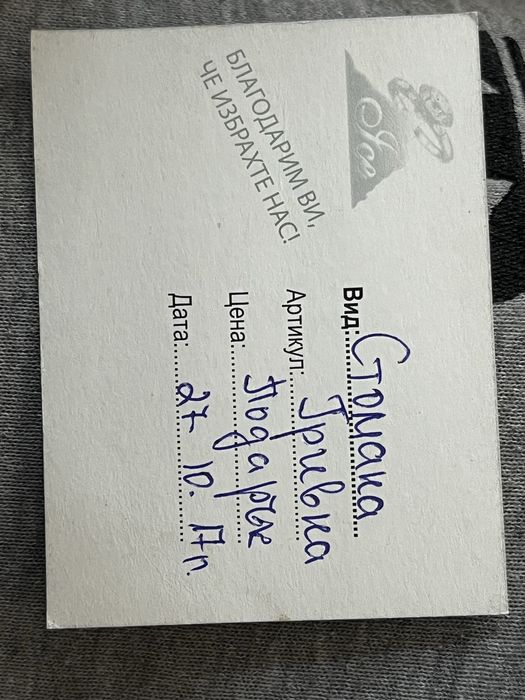 БЛАГОДАРИМ ВИ,
ЧЕ ИЗБРАХТЕ НАС!
Вид: Стомана
Артикул: Гривна
Цена: Подарък
Дата: 27. 10. 17г.